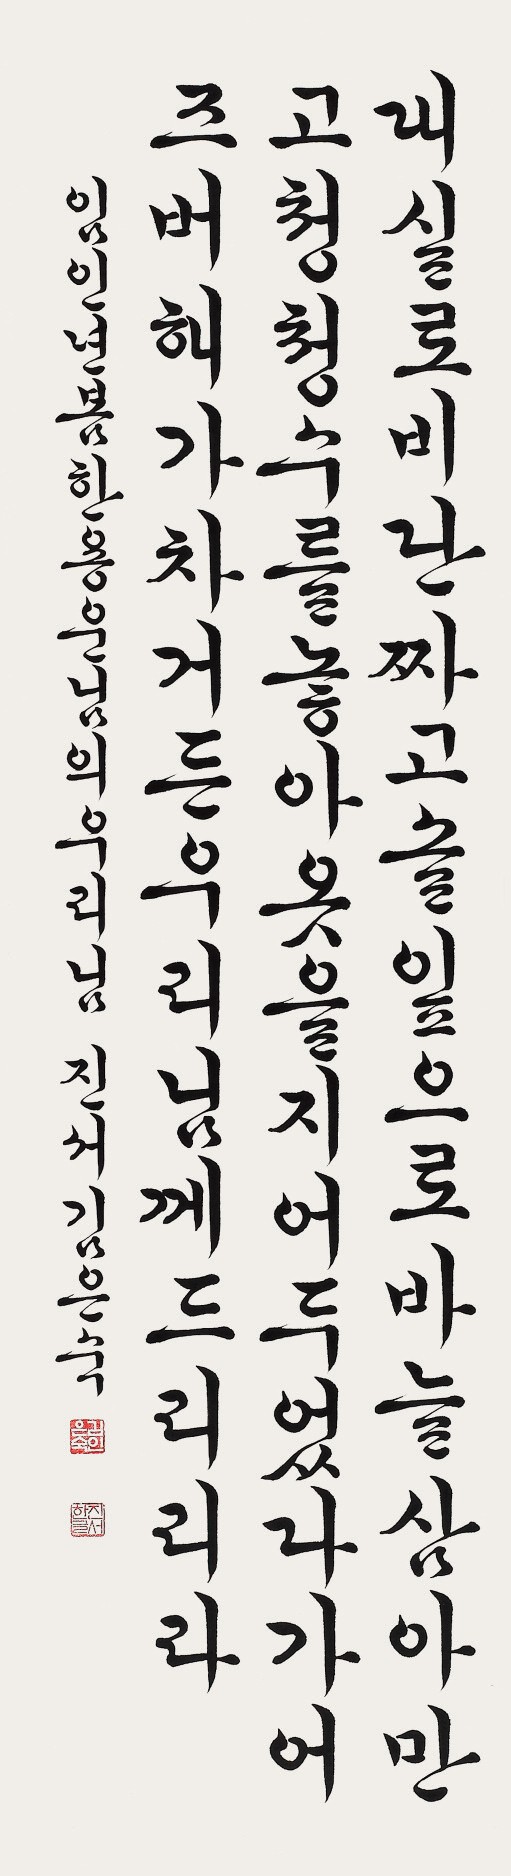 대실로비단짜고솔잎으로바늘삼아만
고청청수를놓아옷을지어두었다가어
즈버해가차거든우리님께드리리라
임인년봄한용운님의우리님 진서김은숙